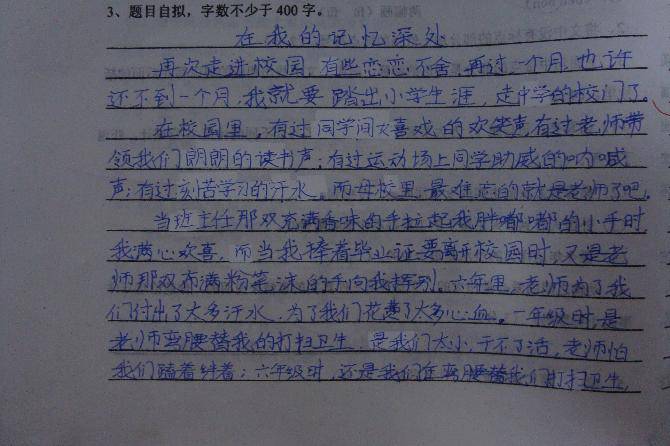 3、题目自拟，字数不少于400字。
在我的记忆深处
再次走进校园，有些恋恋不舍，再过一个月，也许
还不到一个月，我就要踏出小学生涯，走中学的校门了。
在校园里，有过同学间嬉戏的欢笑声，有过老师带
领我们朗朗的读书声；有过运动场上同学助威的呐喊
声；有过刻苦学习的汗水。而母校里最难忘的就是老师了吧。
当班主任那双充满香味的手拉起我胖嘟嘟的小手时
我满心欢喜，而当我捧着毕业证要离开校园时，又是老
师那双布满粉笔沫的手向我挥别。六年里，老师为了我
们付出了太多汗水，为了我们花费了太多心血。一年级时，是
老师弯腰替我的打扫卫生，是我们太小，干不了活，老师怕
我们磕着绊着；六年级时，还是我们任弯腰替我们打扫卫生，